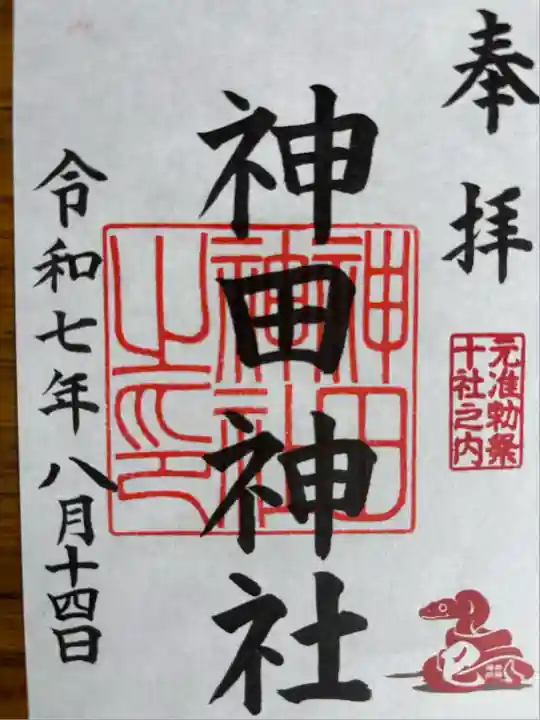 奉拝
元准勅祭
十社之内
神田神社
神田
神社
之印
令和七年八月十四日
巳